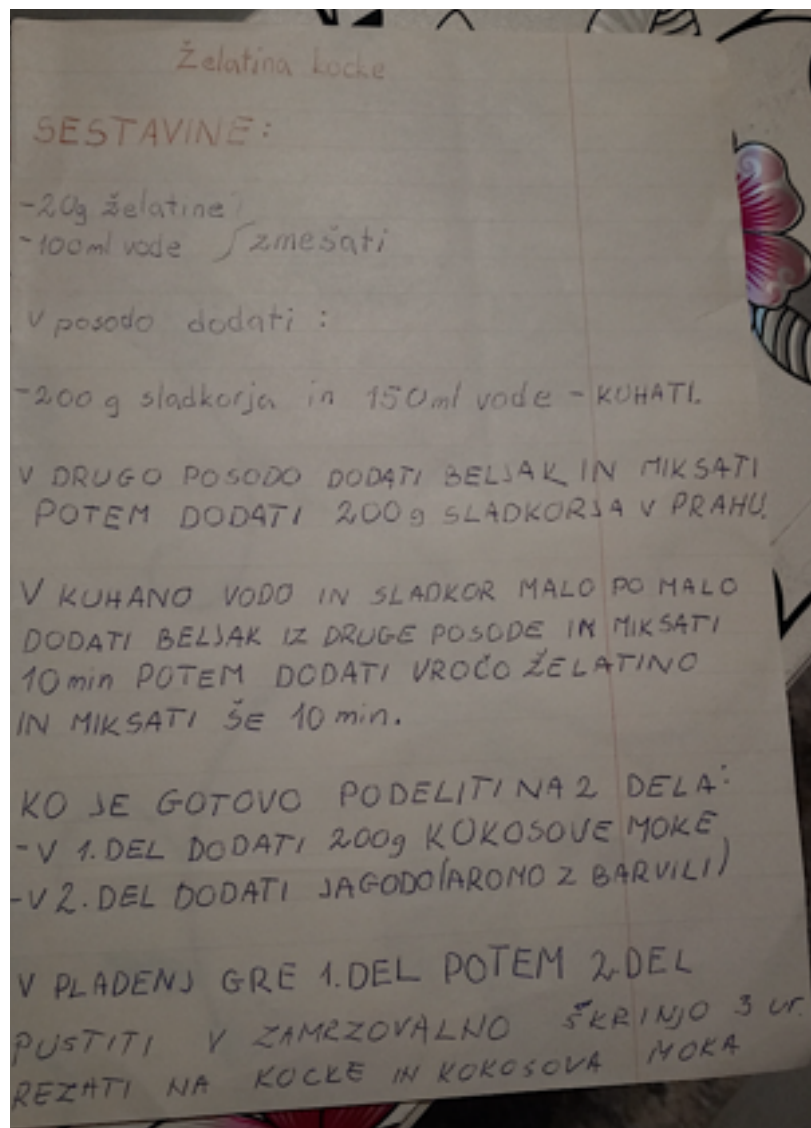 Želatina kocke
SESTAVINE:
-20g želatine
-100ml vode } zmešati
V posodo dodati :
-200 g sladkorja in 150ml vode - KUHATI.
V DRUGO POSODO DODATI BELJAK IN MIKSATI
POTEM DODATI 200g SLADKORJA V PRAHU.
V KUHANO VODO IN SLADKOR MALO PO MALO
DODATI BELJAK IZ DRUGE POSODE IN MIKSATI
10 min POTEM DODATI VROČO ŽELATINO
IN MIKSATI ŠE 10 min.
KO JE GOTOVO PODELITI NA 2 DELA:
-V 1. DEL DODATI 200g KOKOSOVE MOKE
-V 2. DEL DODATI JAGODO(AROMO Z BARVILI)
V PLADENJ GRE 1. DEL POTEM 2. DEL
PUSTITI V ZAMRZOVALNO ŠKRINJO 3 ur.
REZATI NA KOCKE IN KOKOSOVA MOKA